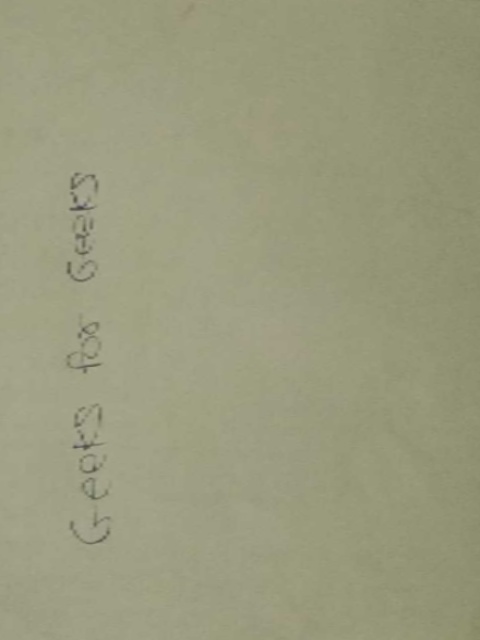 Geeks for Geeks